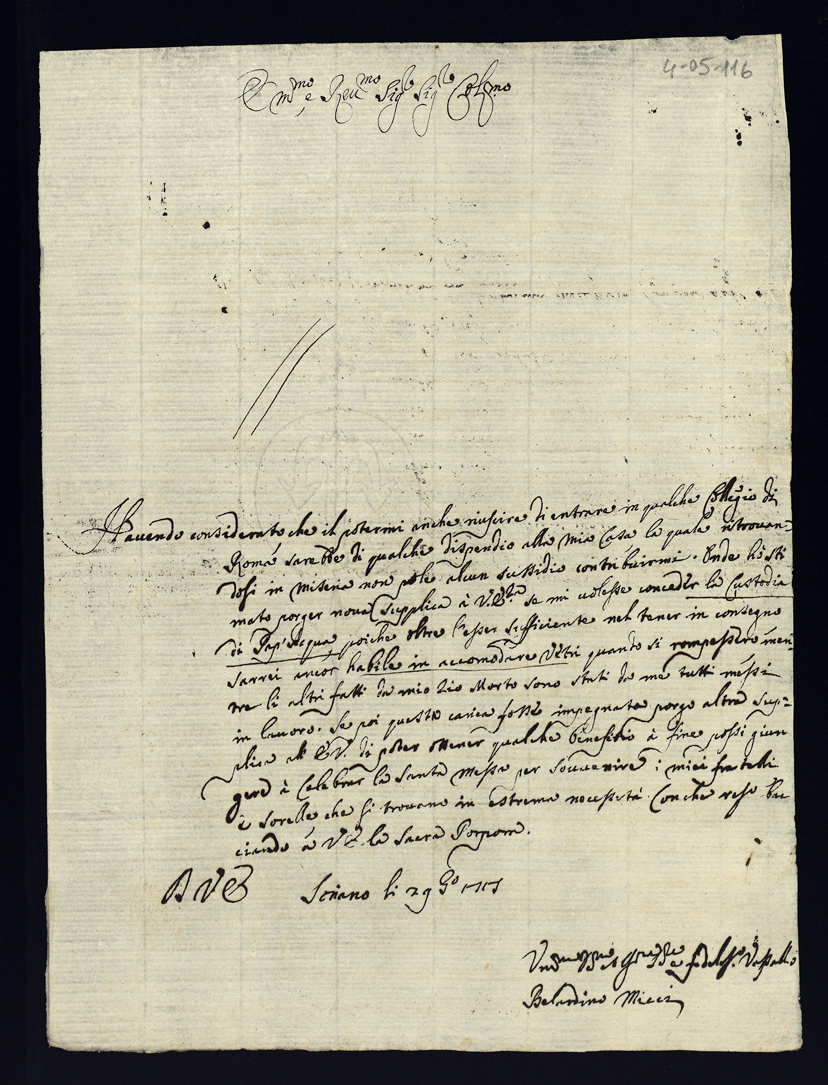 4-05-116
Em.mo e Reu.mo Sig.re Sig.re Col.mo
Hauendo considerato che il potermi anche riuscire di entrare in qualche Collegio di
Roma sarebbe di qualche dispendio alla mia Casa la quale ritrouan=
dosi in miseria non pole alcun sussidio contribuirmi. Onde hò sti
mato porger noua supplica à V. Em.za se mi uolesse conceder la Custodia
di Pap'Acqua, poiche oltre l'esser sufficiente nel tener in consegno
sarrei ancor habile in accomodare Vetri quando si rompessero men=
tre li altri fatti da mio Zio Morto sono stati da me tutti messi
in lauoro. Se poi questa carica fosse impegnata porgo altra sup=
plica all' Em. V. di poter ottener qualche benefitio à fine possi giun
gere à Celebrar la Santa Messa per souuenire i miei fratelli
e sorelle che si trouano in estrema necessità. Con che resto ba
ciando à V. Em. la Sacra Porpora.
D V Em. Soriano li 29
Vmo fedeliss.o Vassallo
Belardino Micci